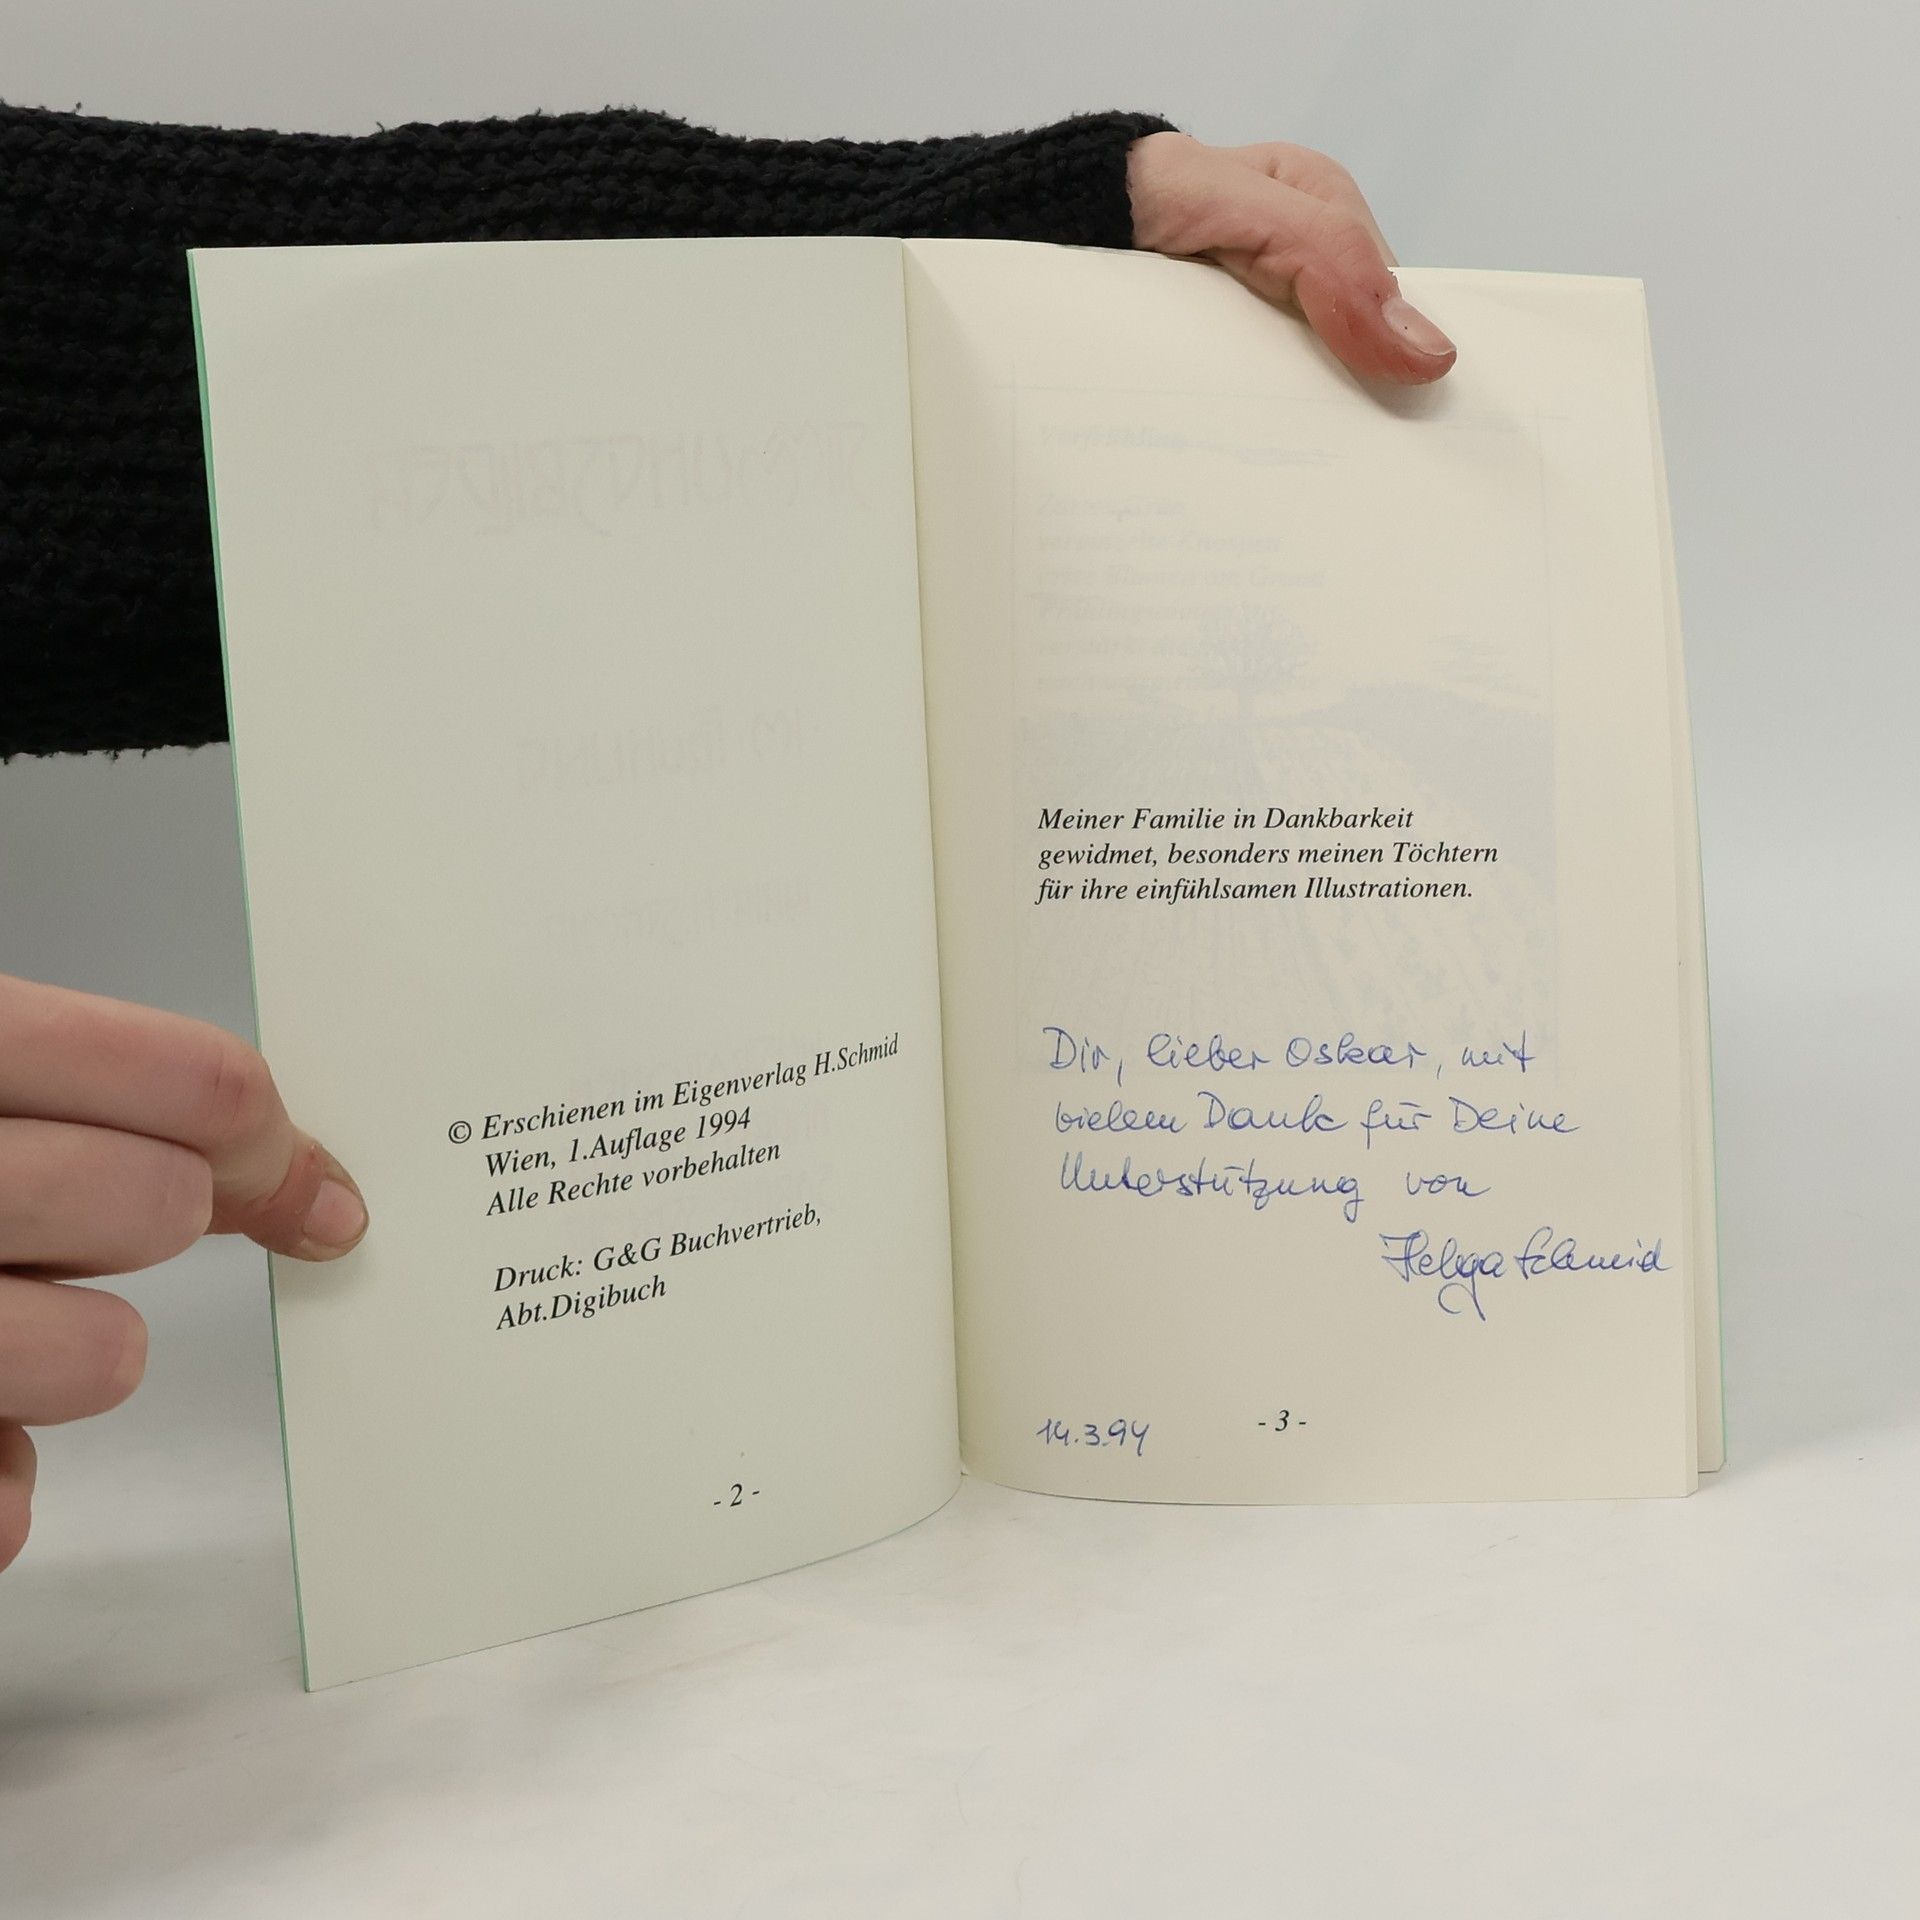 © Erschienen im Eigenverlag H.Schmid
Wien, 1.Auflage 1994
Alle Rechte vorbehalten
Druck: G&G Buchvertrieb,
Abt.Digibuch
- 2 -
Meiner Familie in Dankbarkeit
gewidmet, besonders meinen Töchtern
für ihre einfühlsamen Illustrationen.
Dir, lieber Oskar, mit
vielem Dank für Deine
Unterstützung von
Helga Schmid
14.3.94
- 3 -